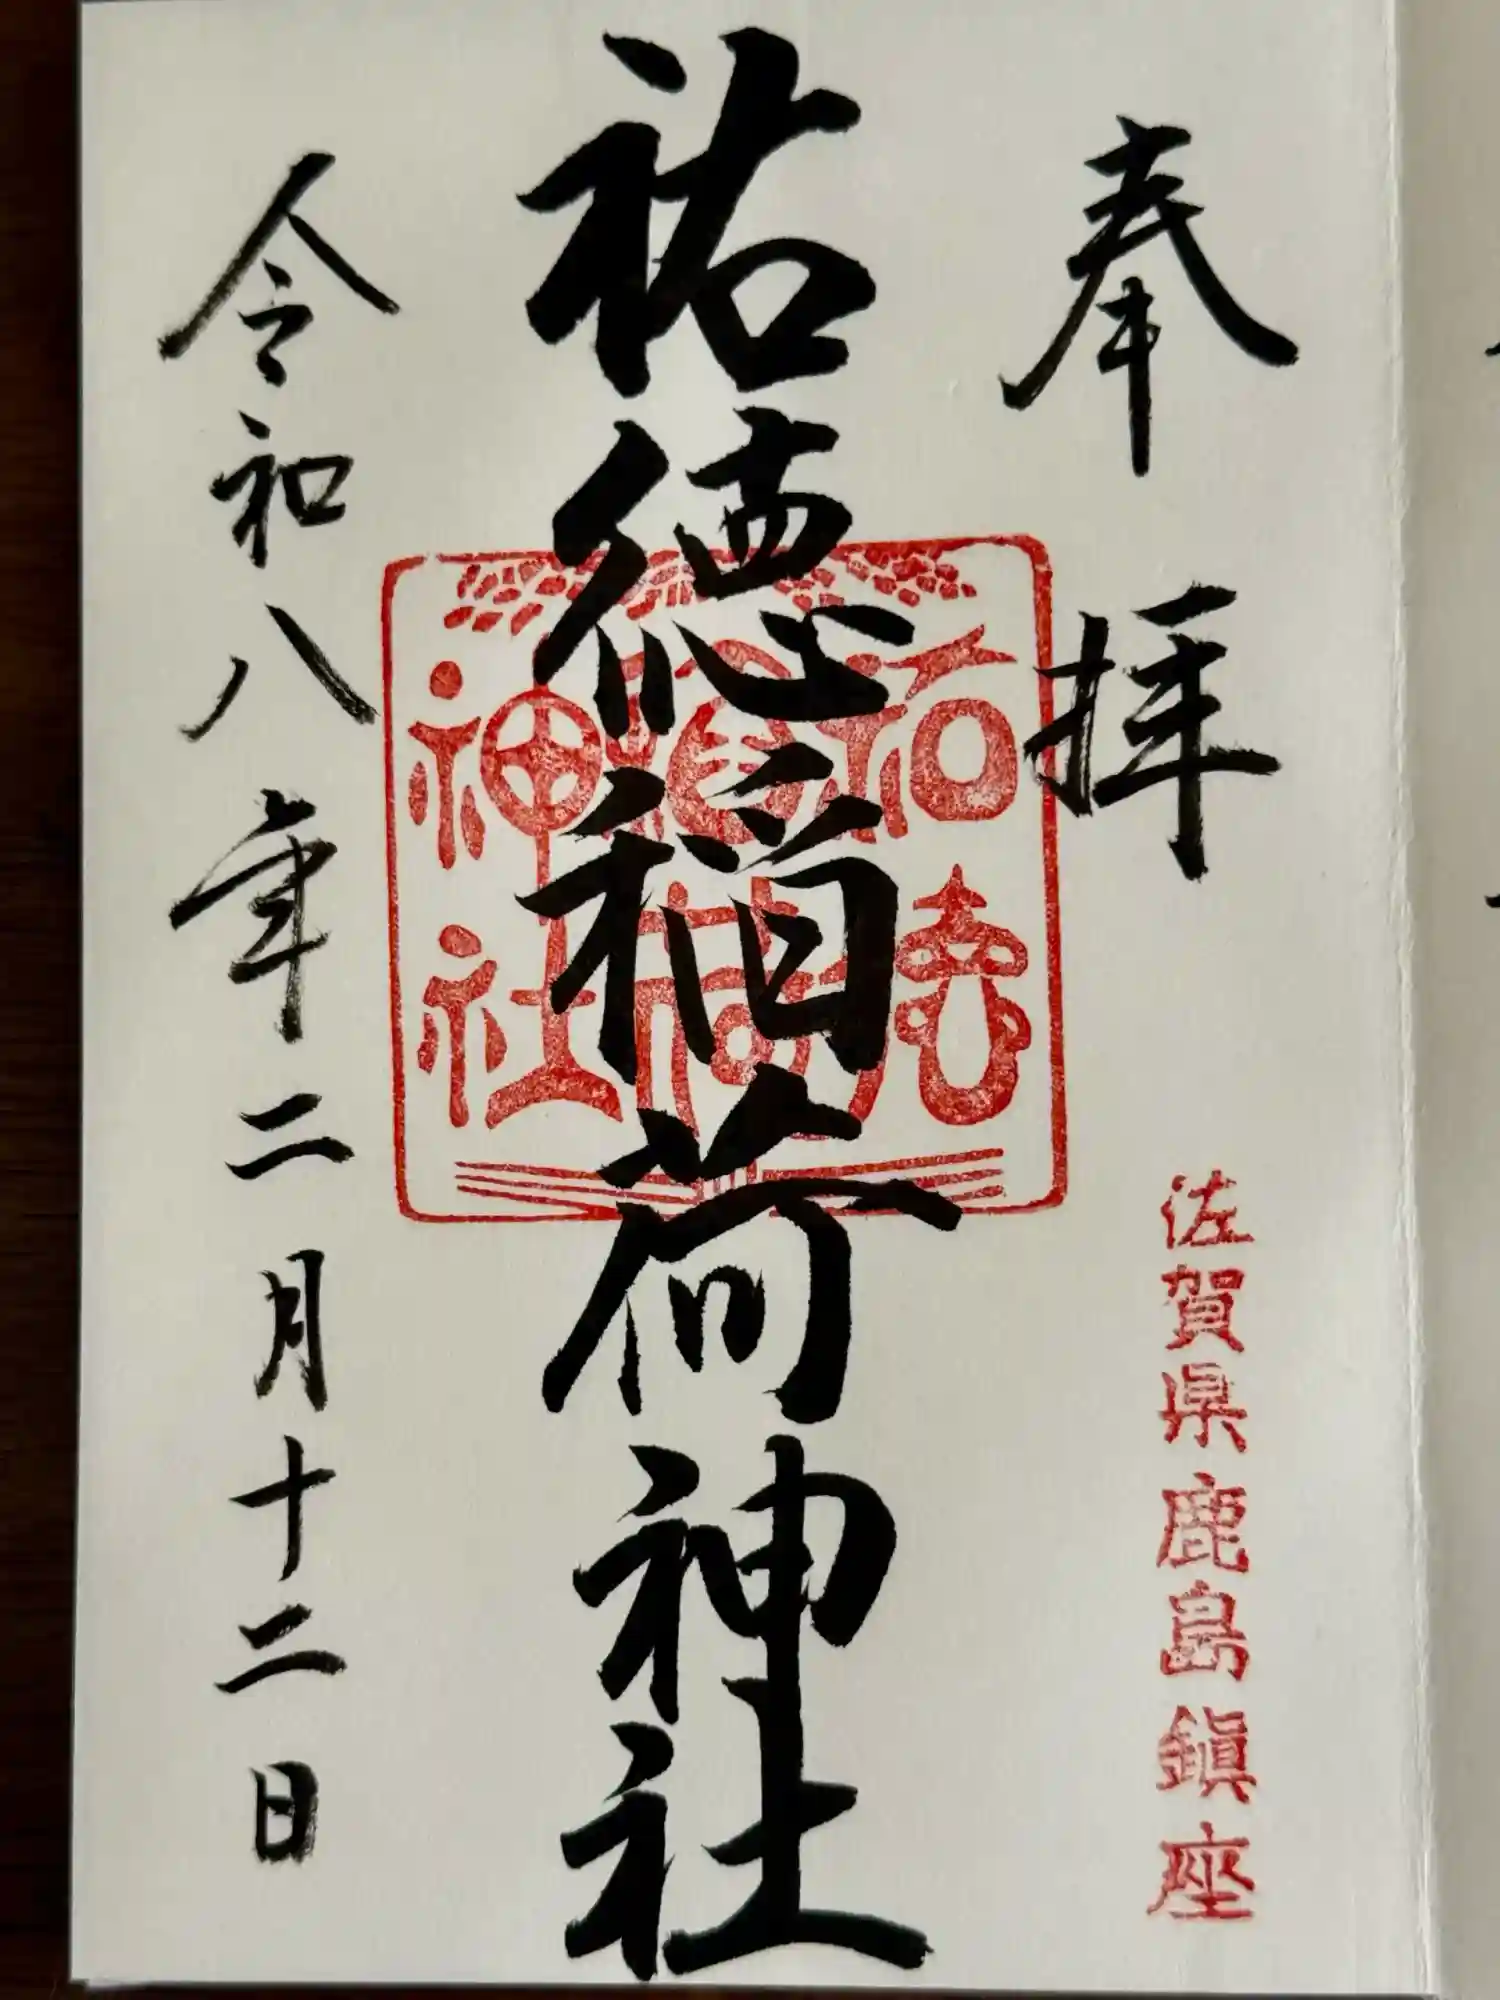 奉拝
佐賀県鹿島鎮座
祐徳稲荷神社
祐徳
稲荷
神社
令和八年二月十二日